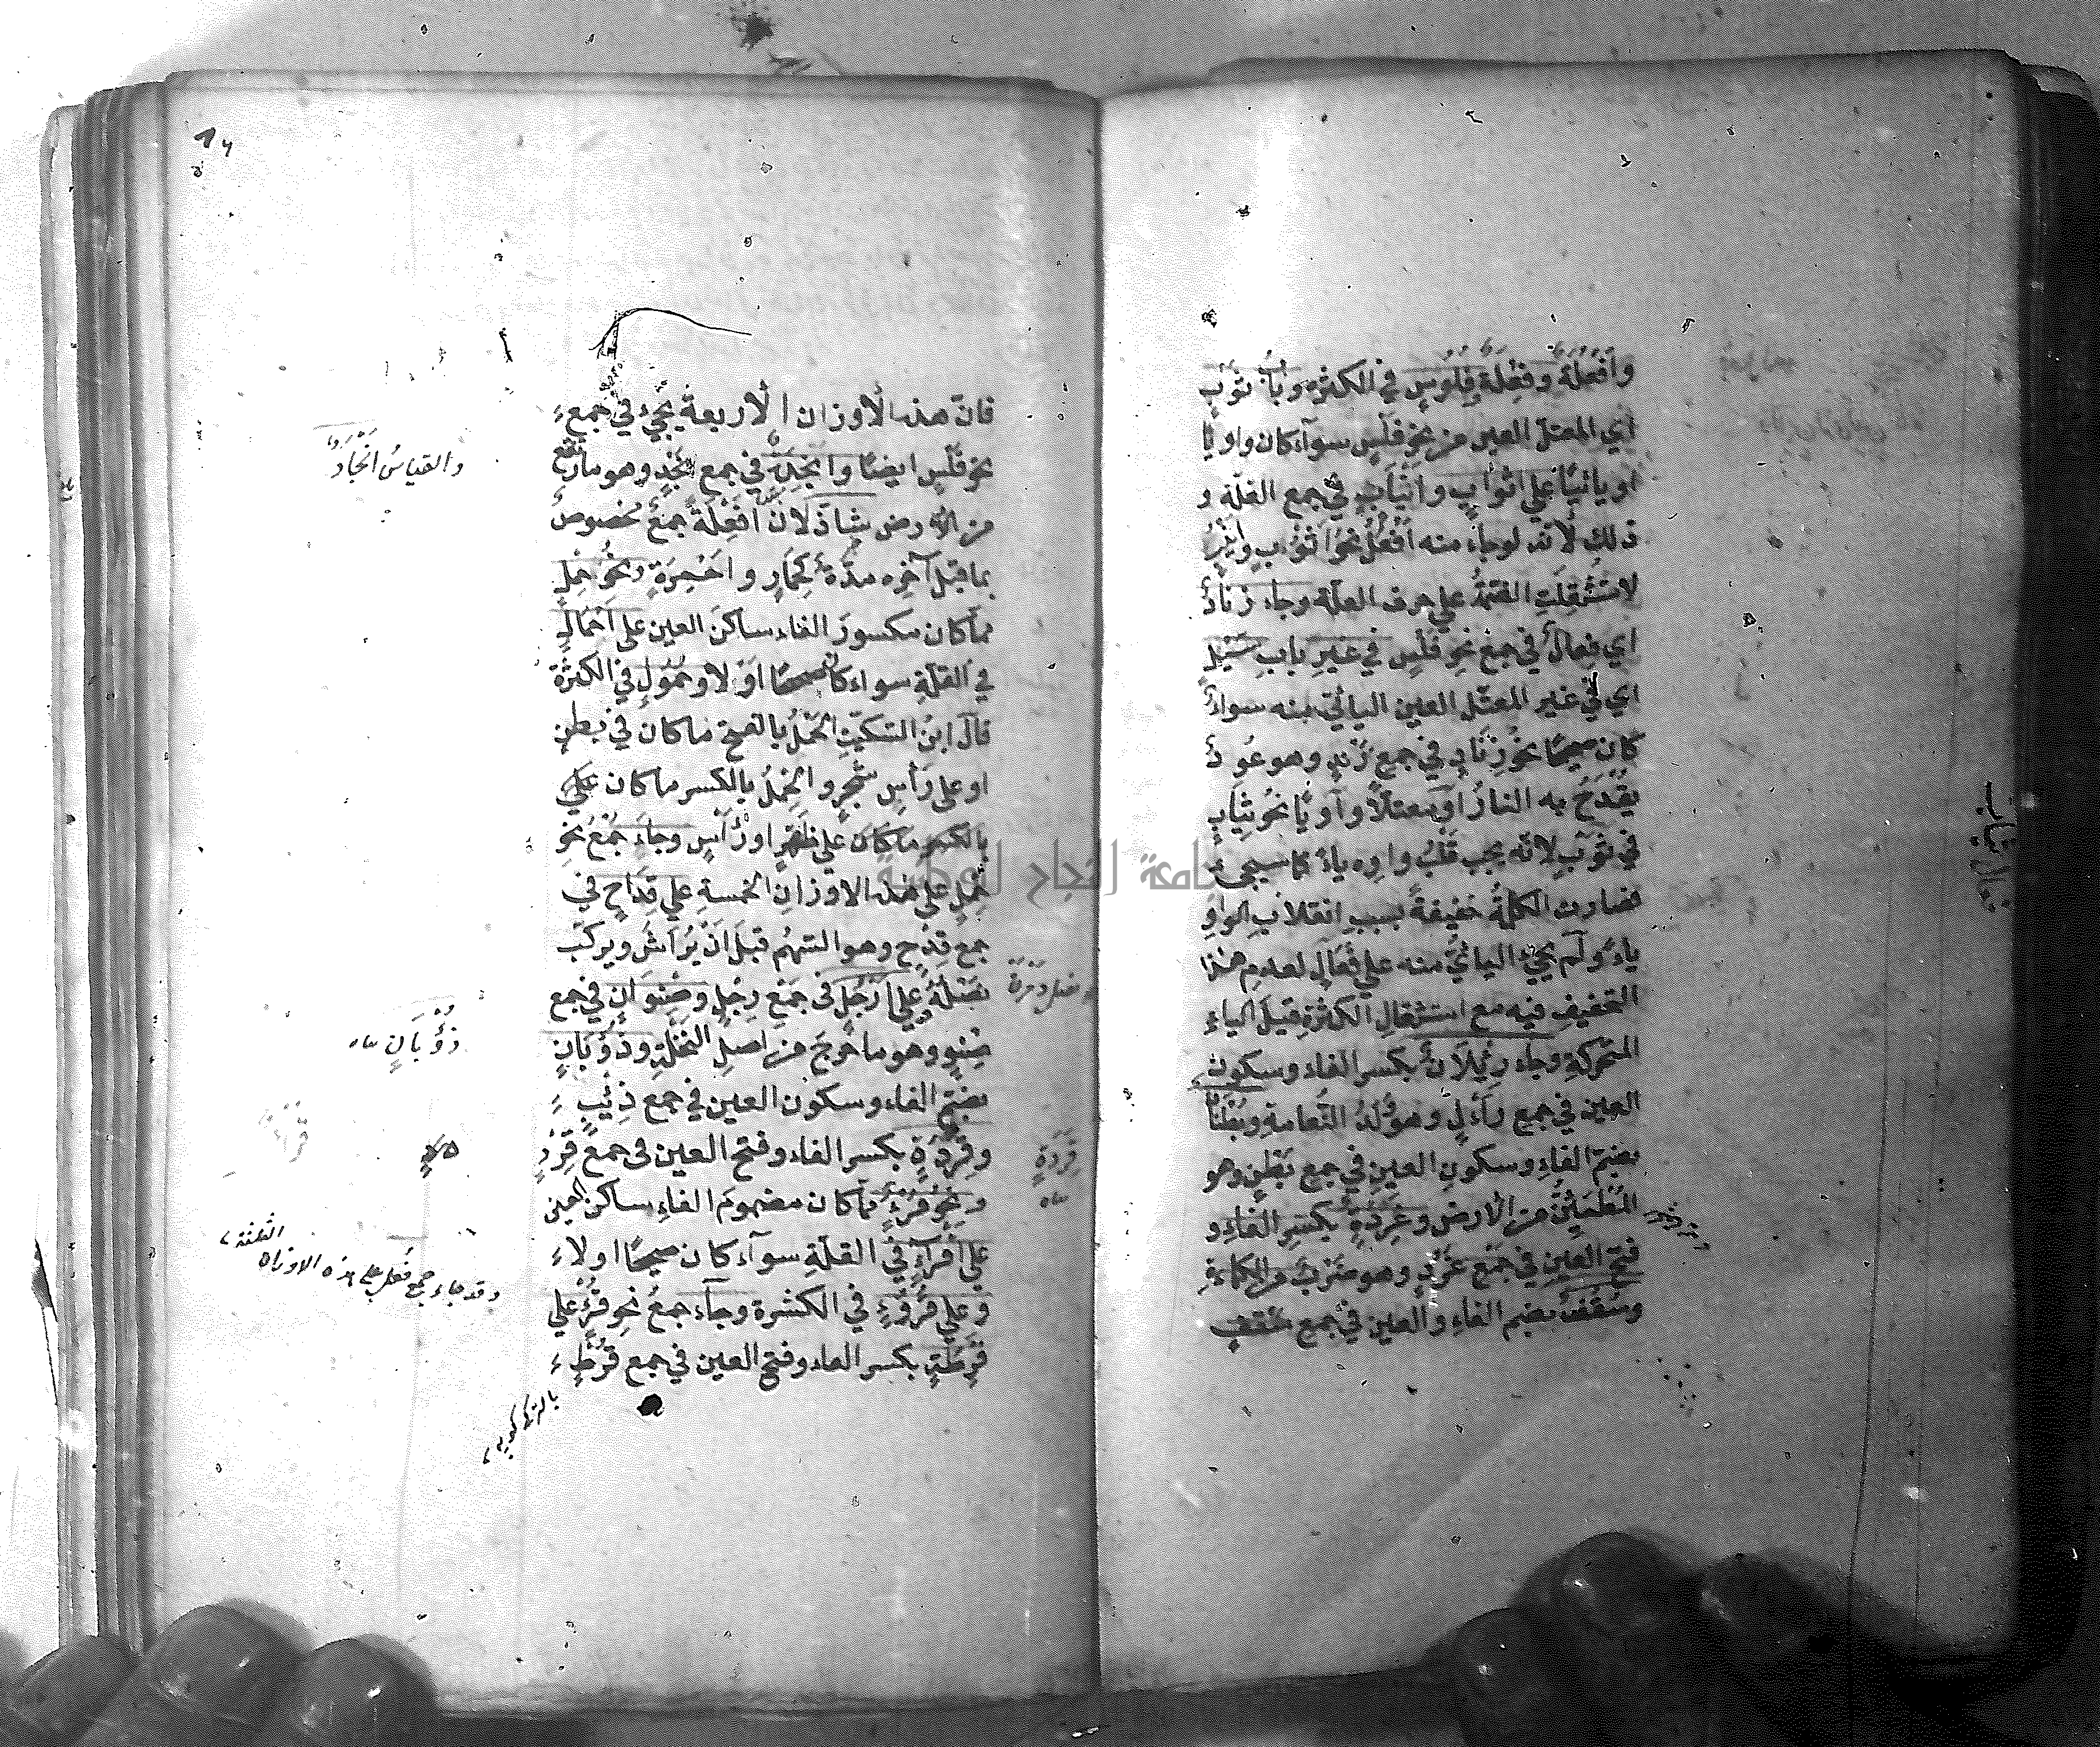 وَأَفْعُلَةٌ وَفِعْلَةٌ فُلُوسٍ في الكثرة وبابُ ثَوْبٍ
اي المعتلّ العين من نحو فلسٍ سوآء كان واويًّا
او يائيًّا على اثوابٍ وانيابٍ في جمع القلّة و
ذلك لأنّه لو جاء منه أَفْعُلٌ نحو اَثْوُبٍ
لاستُثقِلَتِ الضمّةُ على حرف العلّة وجاء زنادٌ
اي فِعالٌ في جمع نحوِ فلسٍ في غيرِ بابِ سَيْلٍ
اي في غير المعتل العين اليائيّ منه سواءٌ
كان صحيحًا نحوُ زِنَادٍ في جمع زَنْدٍ وهو عُودٌ
يُقْدَحُ به النارُ او معتلًّا واويًّا نحوُ ثِيَابٍ
في ثوبٍ لانّه يجب قلبُ واوِه ياءً كما سيجيءُ
فصارت الكلمةُ خفيفةً بسببِ انقلابِ الواوِ
ياءً ولم يجئ اليائيُّ منه على فِعَالٍ لعدمِ هذا
التخفيفِ فيه مع استثقالِ الكثرةِ قبل الياءِ
المتحركةِ وجاء رِئْلَانٌ بكسر الفاء وسكون
العين في جمع رَأْلٍ وهو وَلَدُ النَّعامةِ وبُطْنَانٌ
بضمّ الفاءِ وسكون العينِ في جمع بَطْنٍ وهو
المُطْمَئِنُّ من الأرض وغِرَدَةٌ بكسرِ الفاءِ و
فتحِ العينِ في جمع غَرْدٍ وهو ضَرْبٌ من الكَمْأَةِ
وسُقُفٌ بضم الفاءِ والعين في جمع سَقْفٍ
فانّ هذه الأوزان الأربعةَ يجيءُ في جمعِ
نحو فَلْسٍ ايضًا وأَنْجِدَةٌ في جمع نَجْدٍ وهو ما ارتفع
من الأرض شاذٌّ لانّ أَفْعِلَةً جمعٌ مخصوصٌ
بما قبلَ آخرِه مدّةٌ كحِمَارٍ واَحْمِرَةٍ ونحوُ حِمْلٍ
ممّا كان مكسورَ الفاء ساكنَ العين على اَحْمَالٍ
في القلّةِ سواء كان صحيحًا اَوْ لا وحُمُولٍ في الكثرة
قال ابنُ السكّيتِ الحَمْلُ بالفتح ما كان في بطنٍ
او على رأسِ شجرٍ والحِمْلُ بالكسر ما كان على
بالكسر ما كان على ظَهْرٍ او رَأْسٍ وجاءَ جمعُ نحوِ
حِمْلٍ على هذه الاوزانِ الخمسةِ على قِدَاحٍ في
جمع قِدْحٍ وهو السَّهْمُ قبلَ اَنْ يُرَاشَ ويركّبَ
نَصْلُهُ وعلى أَرْجُلٍ في جَمْعِ رِجْلٍ وصِنْوَانٍ في جمع
صِنْوٍ وهو ما خرجَ من اصلِ النَّخْلَةِ وذُؤْبَانٍ
بضمّ الفاء وسكون العين في جمع ذِئْبٍ
وقِرَدَةٍ بكسر الفاء وفتح العين في جمع قِرْدٍ
ونحوُ قُرْءٍ ممّا كان مضمومَ الفاءِ ساكنَ العين
على أَقْرَآءٍ في القلّةِ سوآء كان صحيحًا او لا
وعلى قُرُوءٍ في الكثرة وجآء جمعُ نحوِ قُرْءٍ على
قِرَطَةٍ بكسر الفاء وفتح العين في جمع قُرْطٍ
والقياسُ أنجادٌ
ذُؤْبَانٍ
قِرَدَةٍ
وقد جاء جمع فُعل على هذه الاوزان
الثلثة